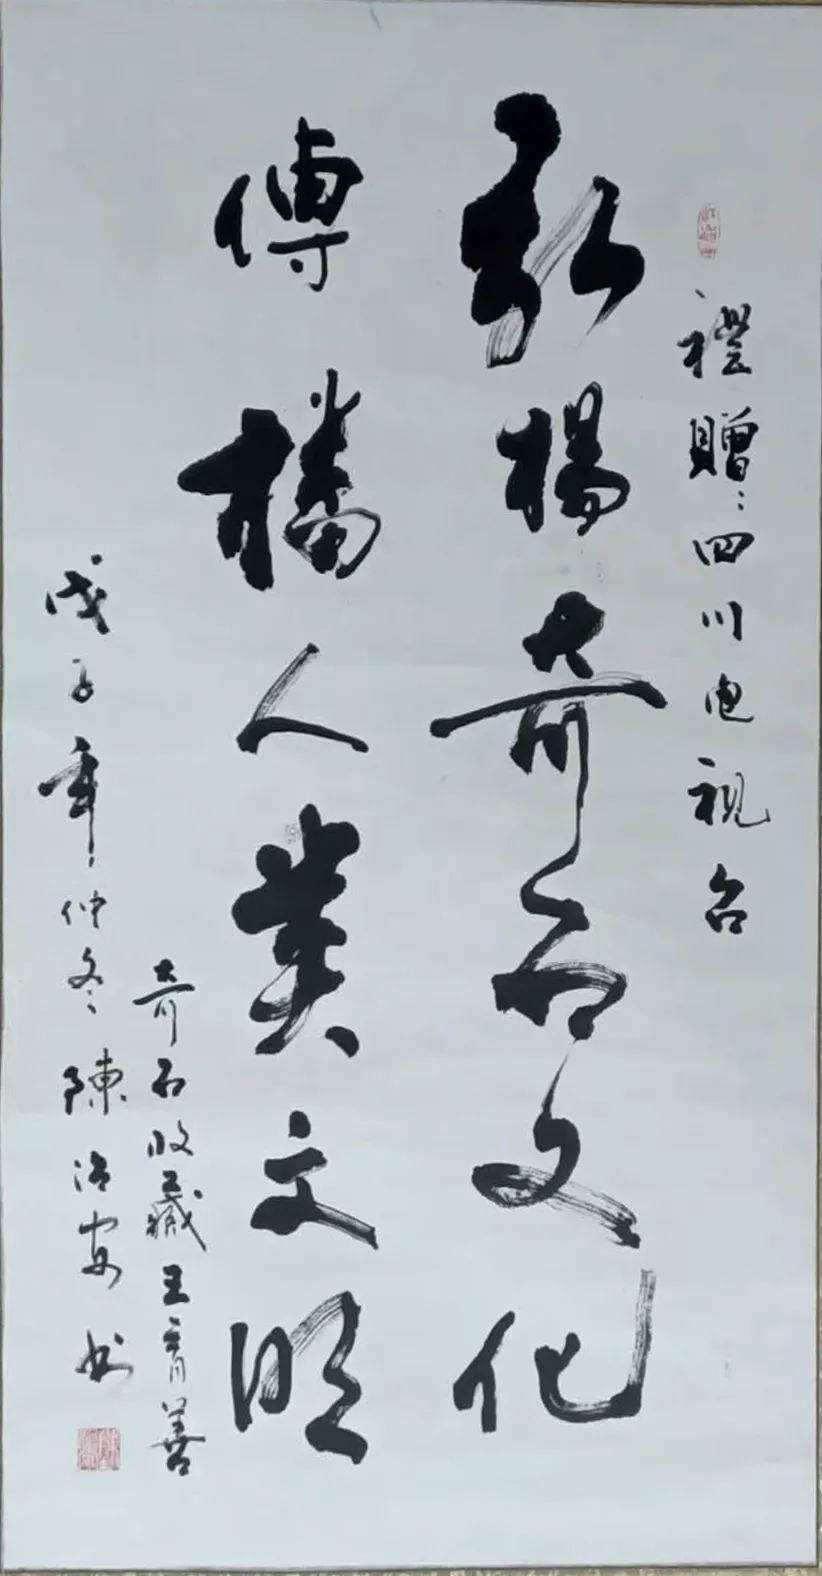 禮贈：四川电視台
弘楊奇石文化
傳播人类文明
奇石收藏王育善
戊子年仲冬陳治安书